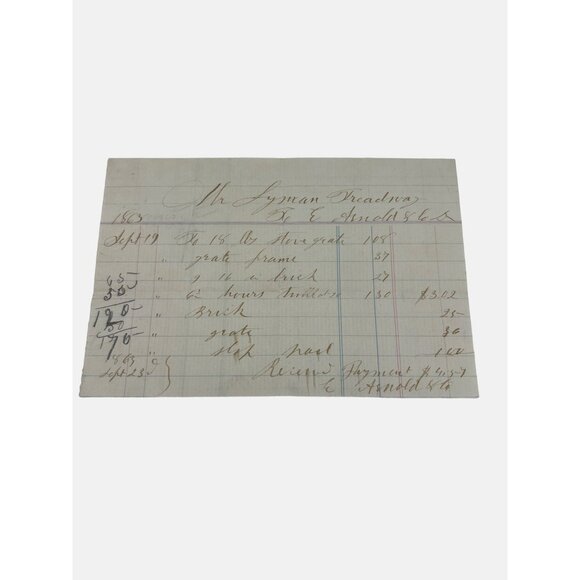 Mr Lyman Treadway
1865 To E Arnold & Co Dr
Sept 19 To 18 lbs stove grate 108
" grate frame 37
" 9 lb brick 27
" hours 130 $3.02
" Brick 25
" grate 30
" slop pail 1 00
65
55
120
50
170
1865
Sept 23d } Received Payment $4.57
E Arnold & Co